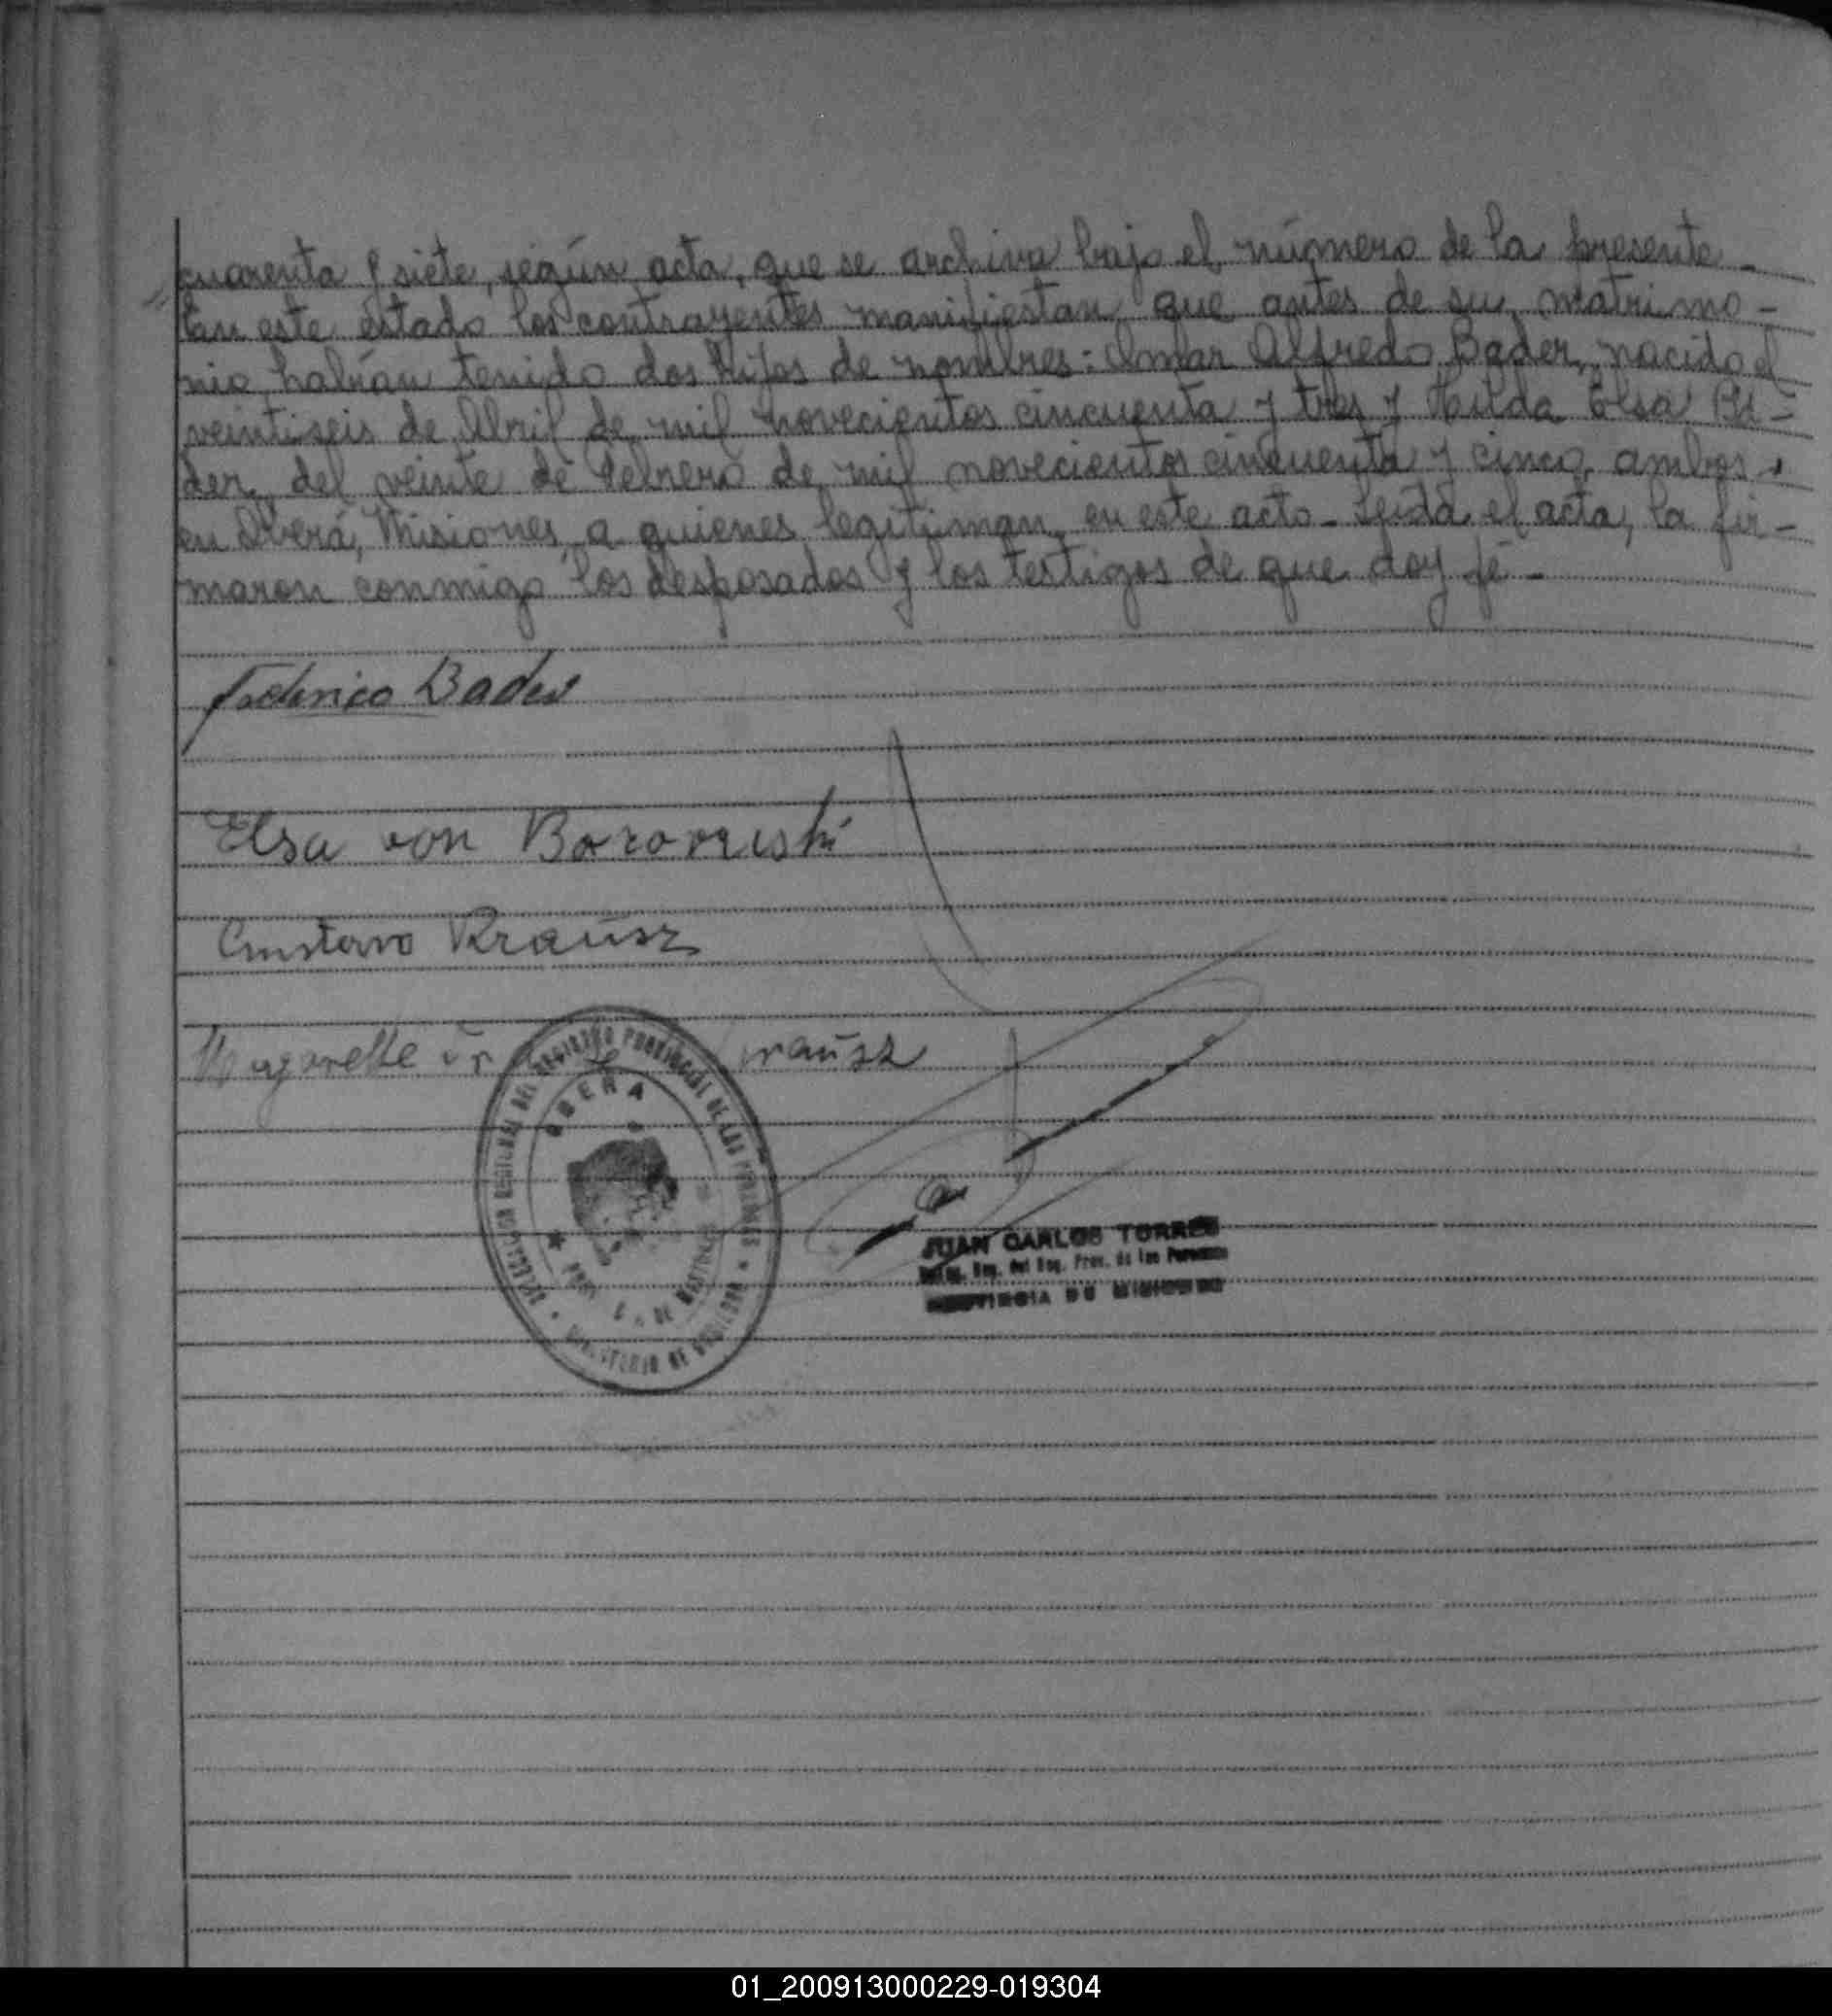 cuarenta y siete, según acta, que se archiva bajo el número de la presente -
En este estado los contrayentes manifiestan que antes de su matrimo -
nio habían tenido dos hijos de nombres: Omar Alfredo Bader, nacido el
veintiseis de Abril de mil novecientos cincuenta y tres y Hilda Elsa Ba -
der, del veinte de Febrero de mil novecientos cincuenta y cinco, ambos
en Oberá, Misiones, a quienes legitiman en este acto - Leída el acta, la fir -
maron conmigo los desposados y los testigos de que doy fé -
Federico Bader
Elsa von Borowski
Gustavo Krausz
Margarethe
OBERA
JUAN CARLOS TORRES
Deleg. Reg. del Reg. Prov. de las Personas
PROVINCIA DE MISIONES
01_200913000229-019304